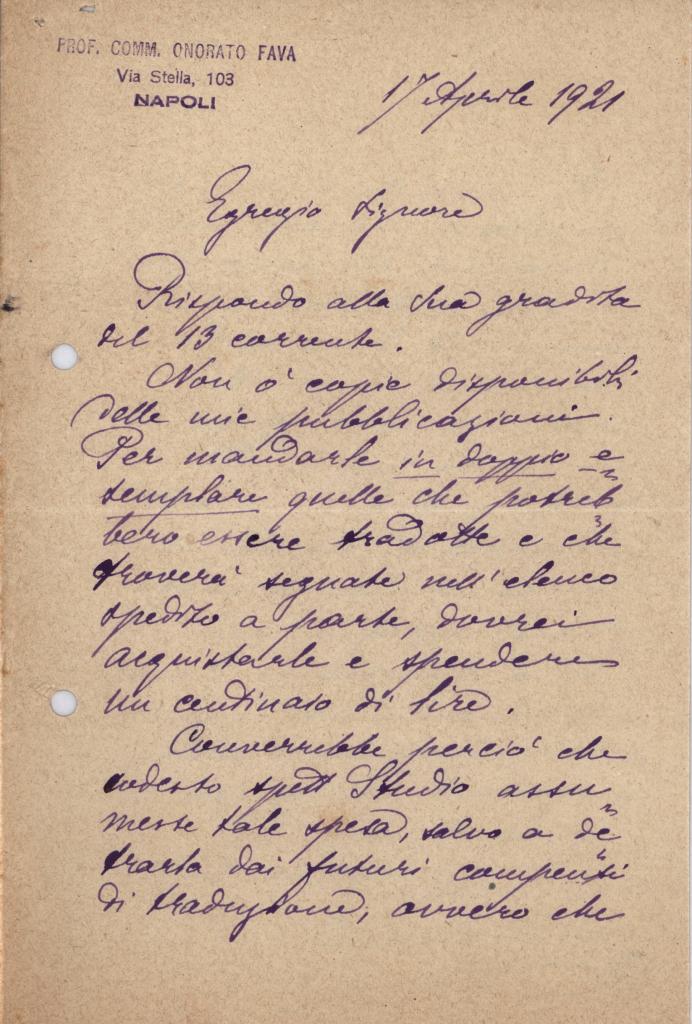 PROF. COMM. ONORATO FAVA
Via Stella, 103
NAPOLI
17 Aprile 1921
Egregio Signore
Rispondo alla Sua gradita
del 13 corrente.
Non ò copie disponibili
delle mie pubblicazioni.
Per mandarle in doppio e=
semplare quelle che potreb=
bero essere tradotte e che
troverà segnate nell'elenco
spedito a parte, dovrei
acquistarle e spendere
un centinaio di lire.
Converrebbe perciò che
codesto spett Studio assu=
messe tale spesa, salvo a de=
trarla dai futuri compensi
di traduzione, ovvero che